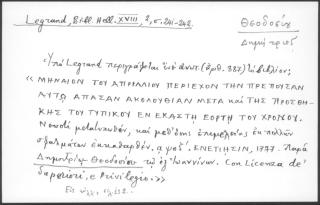 Legrand, Bibl. Hell. XVIII, 2, σ. 241-242.
Θεοδοσίου
Δημήτριος
Ὑπὸ Legrand περιγράφεται ὑπὸ ἀριθ. 887) τὸ βιβλίον:
« ΜΗΝΑΙΟΝ ΤΟΥ ΑΠΡΙΛΙΟΥ ΠΕΡΙΕΧΟΝ ΤΗΝ ΠΡΕΠΟΥΣΑΝ
ΑΥΤΩ ΑΠΑΣΑΝ ΑΚΟΛΟΥΘΙΑΝ ΜΕΤΑ ΚΑΙ ΤΗΣ ΠΡΟΣΘΗ-
ΚΗΣ ΤΟΥ ΤΥΠΙΚΟΥ ΕΝ ΕΚΑΣΤΗ ΕΟΡΤΗ ΤΟΥ ΧΡΟΝΟΥ.
Νεωστὶ μετατυπωθέν, καὶ μεθ' ὅσης ἐπιμελείας ἐκ πολλῶν
σφαλμάτων ἐκκαθαρθέν. ΕΝΕΤΙΗΣΙΝ, 1777. Παρὰ
Δημητρίῳ Θεοδοσίου τῷ ἐξ Ἰωαννίνων. Con Licenza de'
Superiori, e Privilegio »